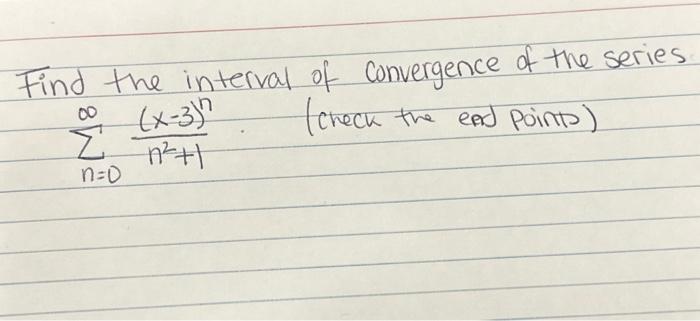 Find the interval of convergence of the series.
∞
∑ (x-3)^n / n²+1 (check the end points)
n=0